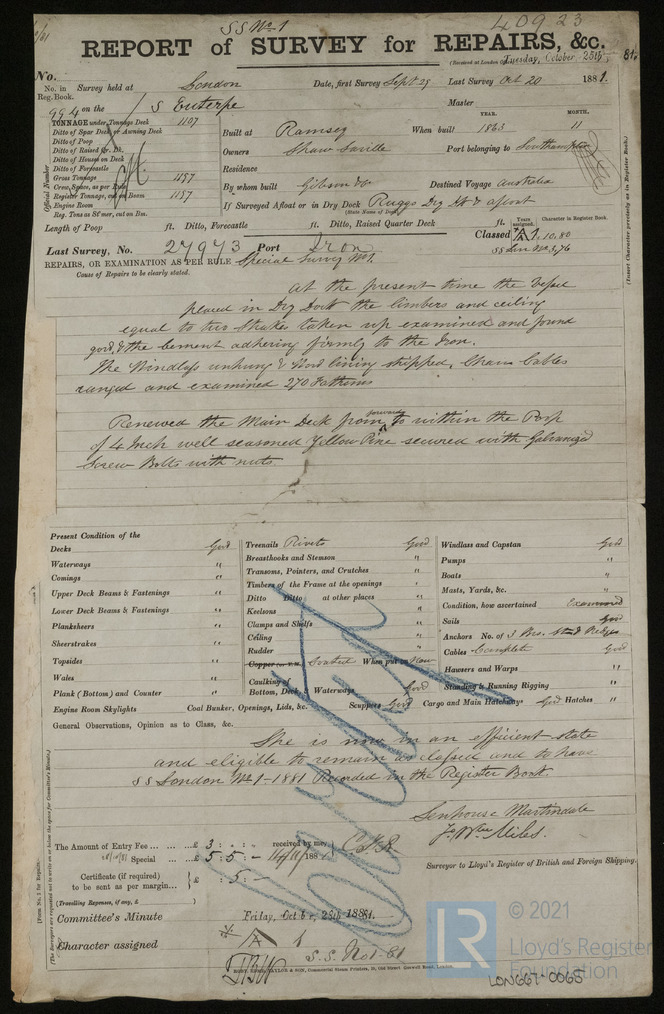 SS No 1
40923
REPORT of SURVEY for REPAIRS, &c.
(Received at London Office Tuesday, October, 25th, 81.
No.
No. in Reg. Book. Survey held at London Date, first Survey Sept 29 Last Survey Oct 20 1881.
994 on the S Euterpe Master
TONNAGE under Tonnage Deck 1107
Ditto of Spar Deck, or Awning Deck
Ditto of Poop
Ditto of Raised Qr. Dk.
Ditto of Houses on Deck
Ditto of Forecastle
Gross Tonnage 1197
Crew Space, as per Rule
Register Tonnage, cut on Beam 1197
Engine Room
Reg. Tons as St'mer, cut on Bm.
Official Number
YEAR. MONTH.
Built at Ramsey When built 1863 11
Owners Shaw Saville Port belonging to Southampton
Residence
By whom built Gibson & Co Destined Voyage Australia
If Surveyed Afloat or in Dry Dock Ruggs Dry Dk & afloat
(State Name of Dock.)
Length of Poop ft. Ditto, Forecastle ft. Ditto, Raised Quarter Deck ft.
Years assigned. Character in Register Book.
(Insert Character precisely as in Register Book.)
Classed A 1. 10.80
SS Lon No 3, 76
Last Survey, No. 27973 Port Iron
REPAIRS, OR EXAMINATION AS PER RULE Special Survey No 1.
Cause of Repairs to be clearly stated.
At the present time the Vessel
placed in Dry Dock the limbers and ceiling
equal to two Strakes taken up examined and found
good, & the Cement adhering firmly to the Iron.
The Windlass unhung & Wood lining stripped, Chain Cables
ranged and examined 270 Fathoms
Renewed the Main Deck from forward to within the Poop
of 4 Inch well seasoned Yellow Pine secured with Galvanized
Screw Bolts with nuts
Present Condition of the
Decks Good
Waterways "
Comings "
Upper Deck Beams & Fastenings "
Lower Deck Beams & Fastenings "
Planksheers "
Sheerstrakes "
Topsides "
Wales "
Plank (Bottom) and Counter "
Engine Room Skylights
Treenails Rivets Good
Breasthooks and Stemson "
Transoms, Pointers, and Crutches "
Timbers of the Frame at the openings "
Ditto Ditto at other places "
Keelsons "
Clamps and Shelfs "
Ceiling "
Rudder "
Copper Coated When put on Now
Caulking of Bottom, Deck & Waterways Good
Coal Bunker, Openings, Lids, &c. Scuppers Good Cargo and Main Hatchways Good Hatches "
Windlass and Capstan Good
Pumps "
Boats "
Masts, Yards, &c. "
Condition, how ascertained Examined
Sails Good
Anchors No. of 3
Cables Complete Good
Hawsers and Warps "
Standing & Running Rigging "
General Observations, Opinion as to Class, &c.
She is now in an efficient state
and eligible to remain as classed and to have
SS London No 1 - 1881 Recorded in the Register Book.
Senhouse Martindale
Miles.
Surveyor to Lloyd's Register of British and Foreign Shipping.
The Amount of Entry Fee ... ... £ 3 : : " received by me,
Special ... ... £ 5 : 5 : - 1881
Certificate (if required) to be sent as per margin... £ : 5 : -
(Travelling Expenses, if any, £ )
Committee's Minute Friday, October, 28th 1881.
Character assigned A 1
S.S. No 1-81
[Form No. 2 for Repairs.
(The Surveyors are requested not to write on or below the space for Committee's Minute.)
© 2021
LR
Lloyd's Register
Foundation
LON667-0065